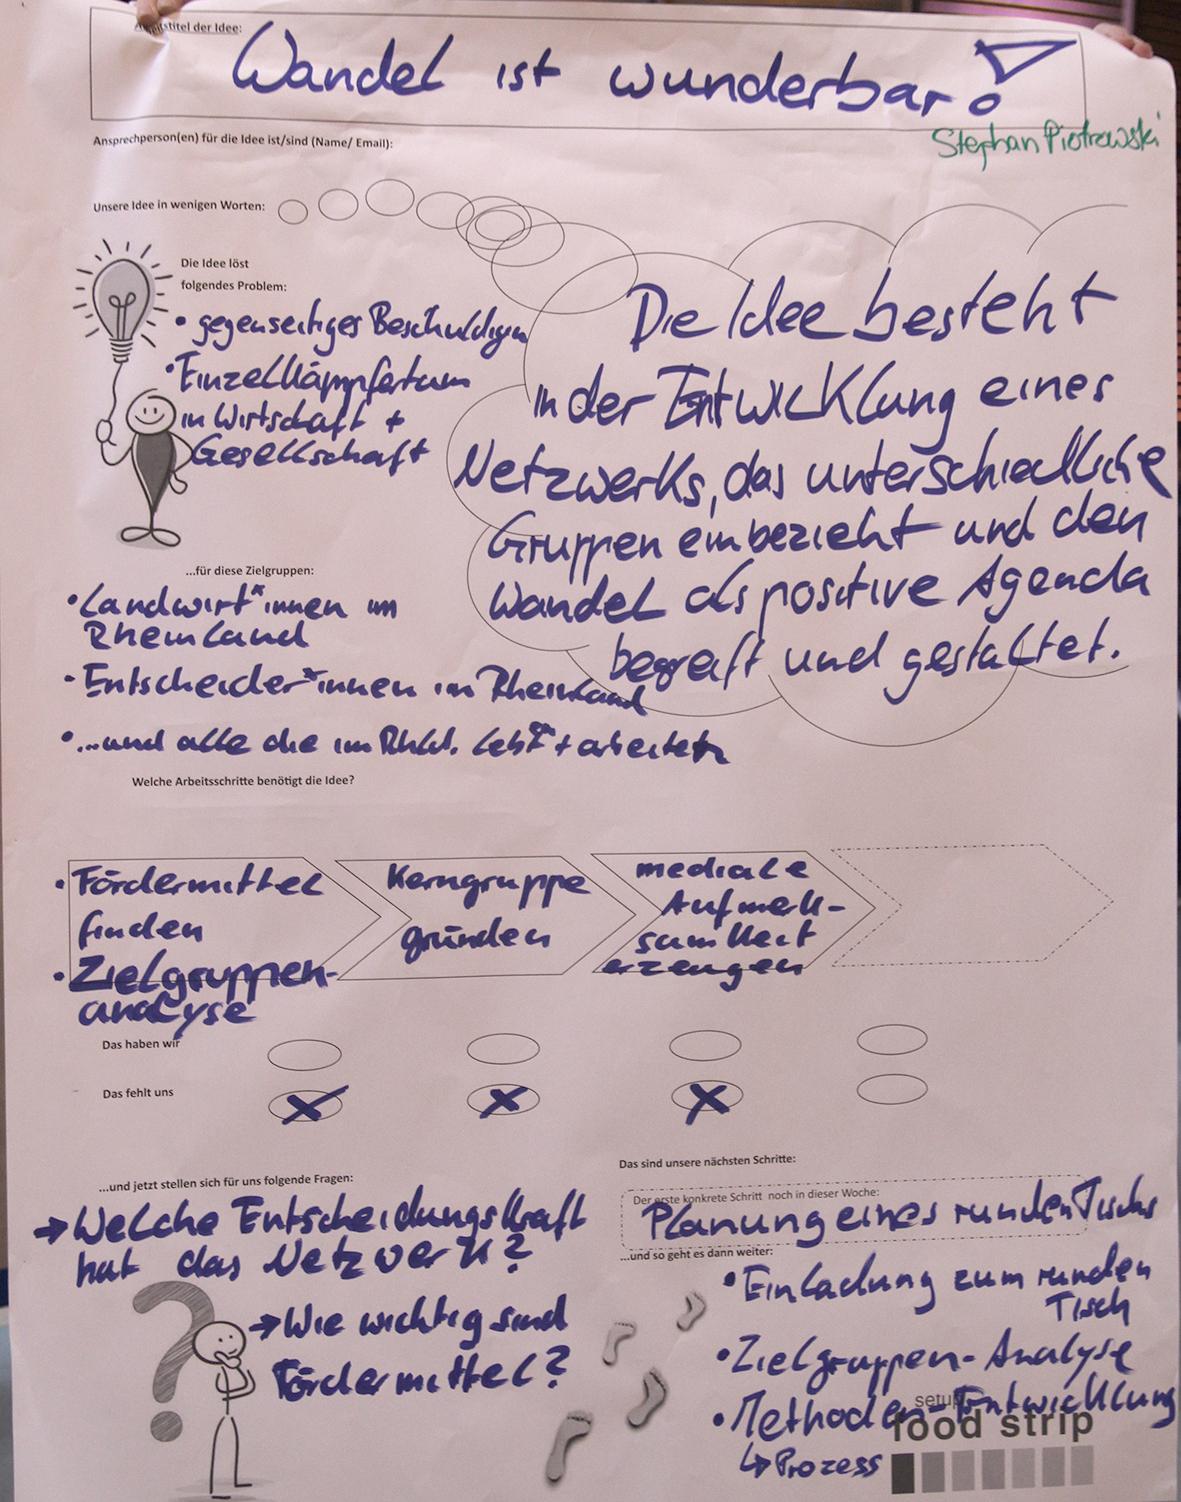 Arbeitstitel der Idee:
Wandel ist wunderbar!
Ansprechperson(en) für die Idee ist/sind (Name/ Email):
Stephan Piotrowski
Unsere Idee in wenigen Worten:
Die Idee besteht
in der Entwicklung eines
Netzwerks, das unterschiedliche
Gruppen einbezieht und den
Wandel als positive Agenda
begreift und gestaltet.
Die Idee löst
folgendes Problem:
• gegenseitiges Beschuldigen
• Einzelkämpfertum
in Wirtschaft +
Gesellschaft
...für diese Zielgruppen:
• Landwirt*innen im
Rheinland
• Entscheider*innen im Rheinland
• ...und alle die im Rhld. lebt + arbeiten
Welche Arbeitsschritte benötigt die Idee?
• Fördermittel
finden
• Zielgruppen-
analyse
Kerngruppe
gründen
mediale
Aufmerk-
samkeit
erzeugen
Das haben wir
Das fehlt uns
...und jetzt stellen sich für uns folgende Fragen:
→ Welche Entscheidungskraft
hat das Netzwerk?
→ Wie wichtig sind
Fördermittel?
Das sind unsere nächsten Schritte:
Der erste konkrete Schritt noch in dieser Woche:
Planung eines runden Tischs
...und so geht es dann weiter:
• Einladung zum runden
Tisch
• Zielgruppen-Analyse
• Methoden-Entwicklung
↳ Prozess
setup
food strip